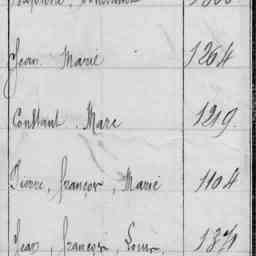 Jean Marie 1264
Constant, Marc 1219.
Pierre, françois, Marie 1104
Jean, françois, Louis,